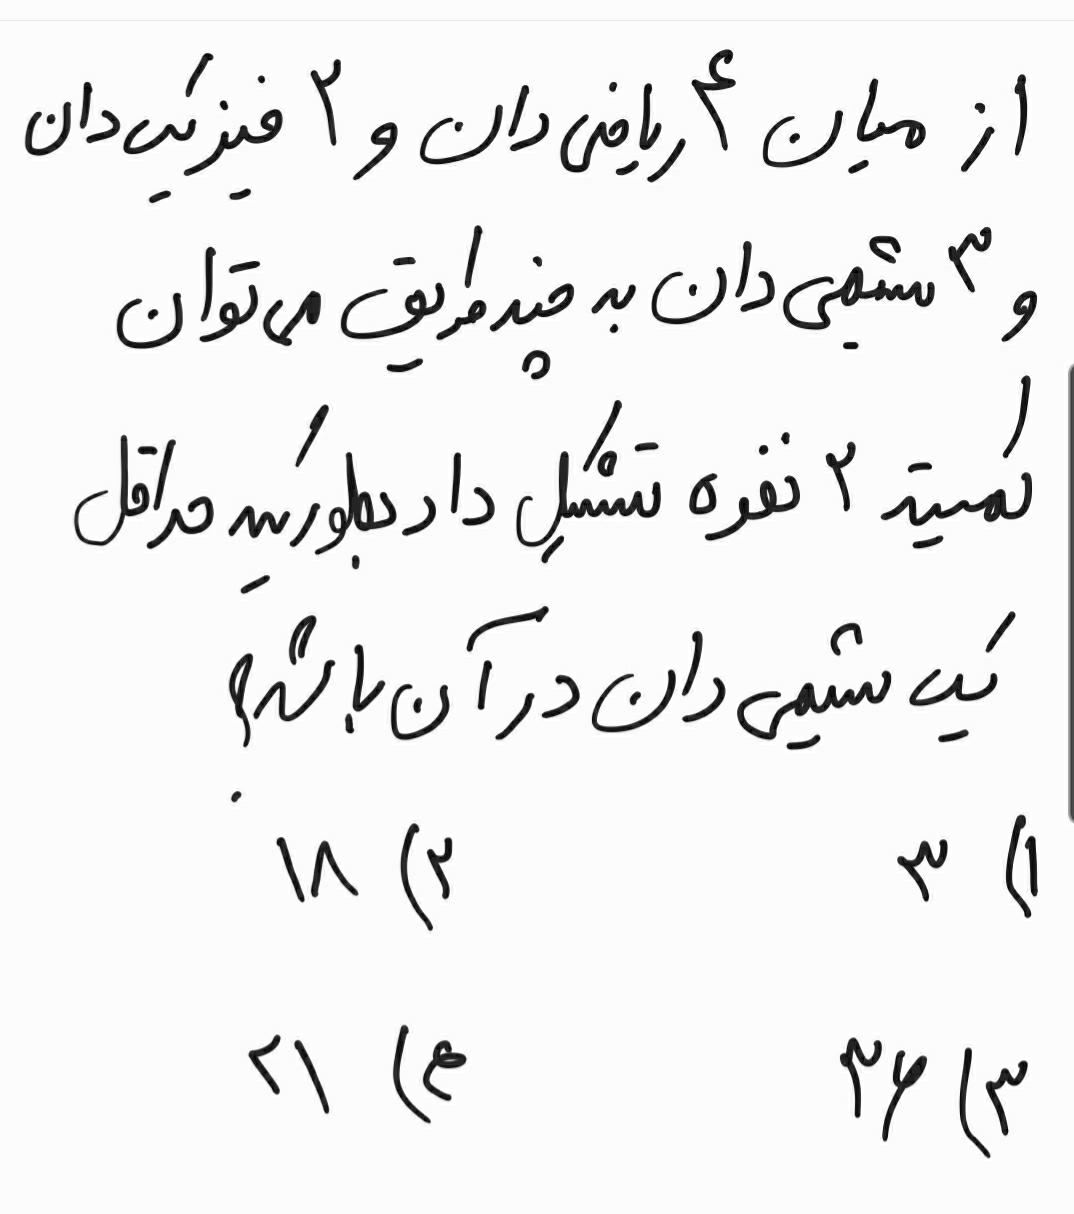 از میان ۴ ریاضی دان و ۲ فیزیک دان
و ۳ شیمی دان به چند طریق می توان
کمیته ۲ نفره تشکیل داد بطوریکه حداقل
یک شیمی دان در آن باشد؟
۱) ۳ ۲) ۱۸
۳) ۳۶ ۴) ۲۱